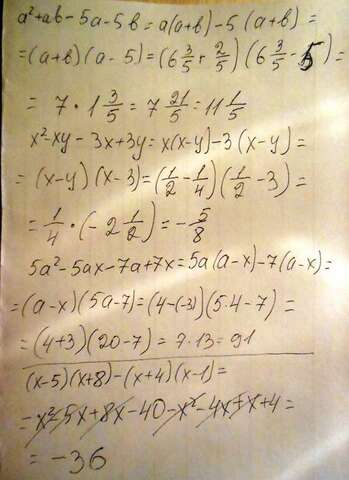 a²+ab-5a-5b=a(a+b)-5(a+b)=
=(a+b)(a-5)=(6 3/5+2/5)(6 3/5-5)=
= 7·1 3/5=7 21/5=11 1/5
x²-xy-3x+3y=x(x-y)-3(x-y)=
=(x-y)(x-3)=(1/2-1/4)(1/2-3)=
=1/4·(-2 1/2)=-5/8
5a²-5ax-7a+7x=5a(a-x)-7(a-x)=
=(a-x)(5a-7)=(4-(-3))(5·4-7)=
=(4+3)(20-7)=7·13=91
(x-5)(x+8)-(x+4)(x-1)=
=x²-5x+8x-40-x²-4x+x+4=
=-36